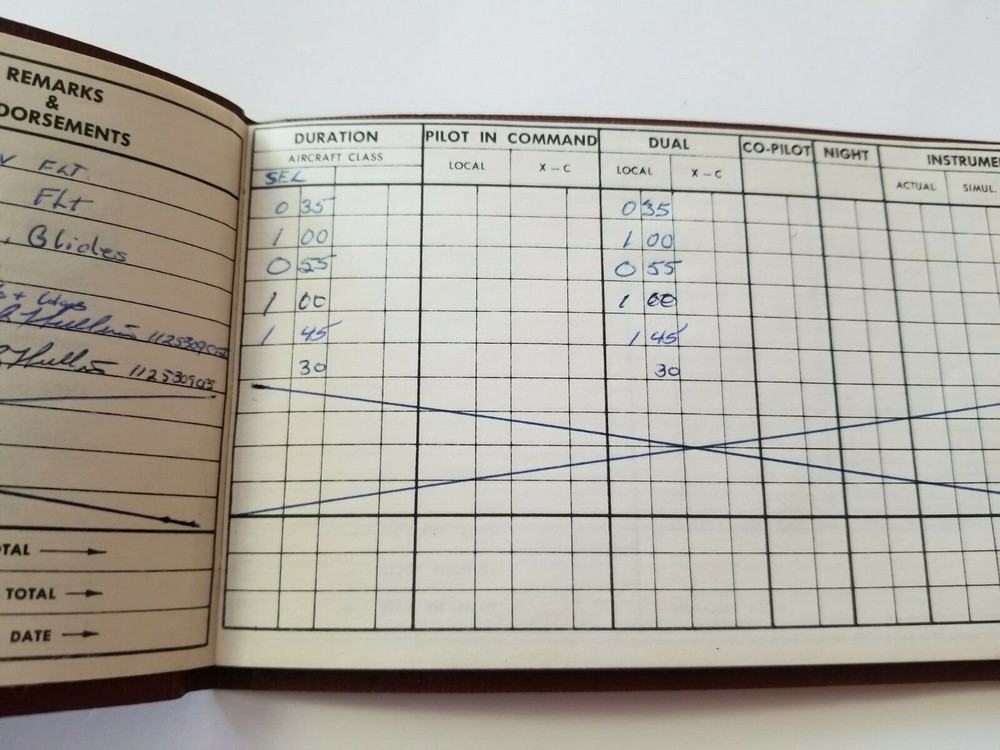 REMARKS
&
DORSEMENTS
FLT.
FLt
Glides
1125309
1125309
OTAL
TOTAL
DATE
DURATION PILOT IN COMMAND DUAL CO-PILOT NIGHT INSTRUME
AIRCRAFT CLASS LOCAL X-C LOCAL X-C ACTUAL SIMUL.
SEL
0 35 0 35
1 00 1 00
0 55 0 55
1 00 1 00
1 45 1 45
30 30